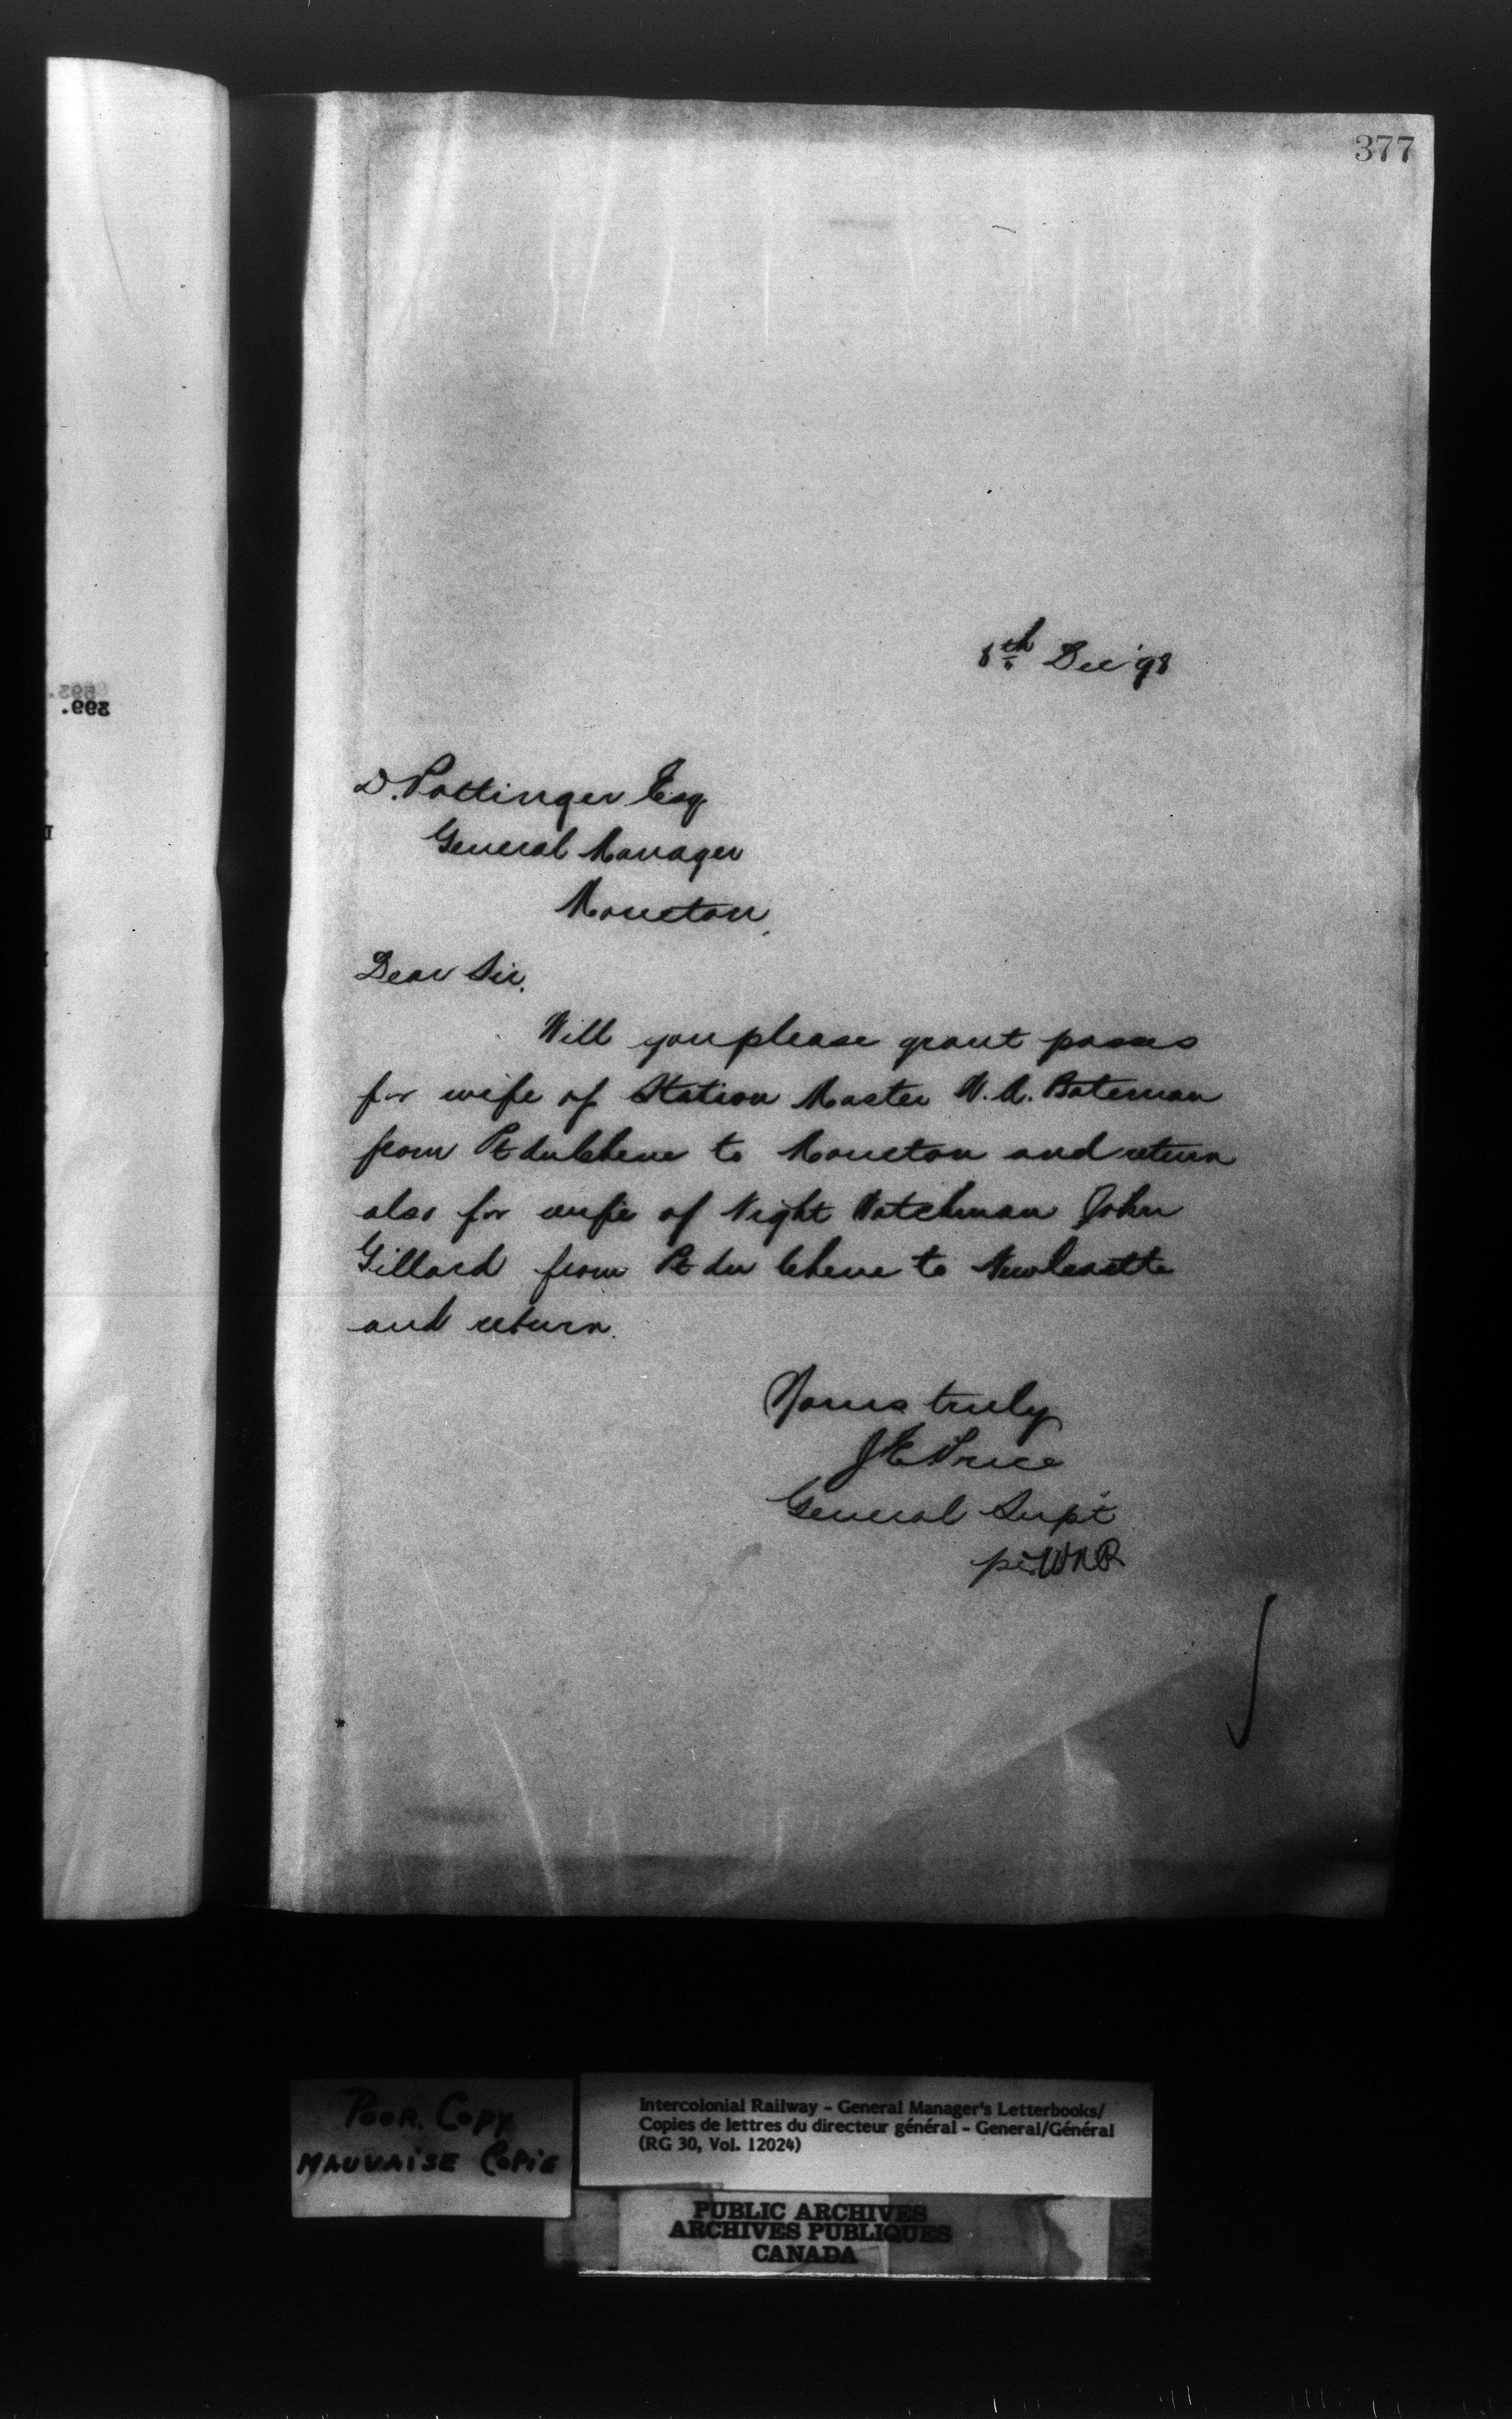 377
8th Dec '98
399.
D. Pottinger Esq
General Manager
Moncton,
Dear Sir,
Will you please grant passes
for wife of Station Master W. A. Bateman
from Pt du Chene to Moncton and return
also for wife of Night Watchman John
Gillard from Pt du Chene to Newcastle
and return.
Yours truly
J E Price
General Supt
per WNR
Poor Copy
Mauvaise Copie
Intercolonial Railway - General Manager's Letterbooks/
Copies de lettres du directeur général - General/Général
(RG 30, Vol. 12024)
PUBLIC ARCHIVES
ARCHIVES PUBLIQUES
CANADA